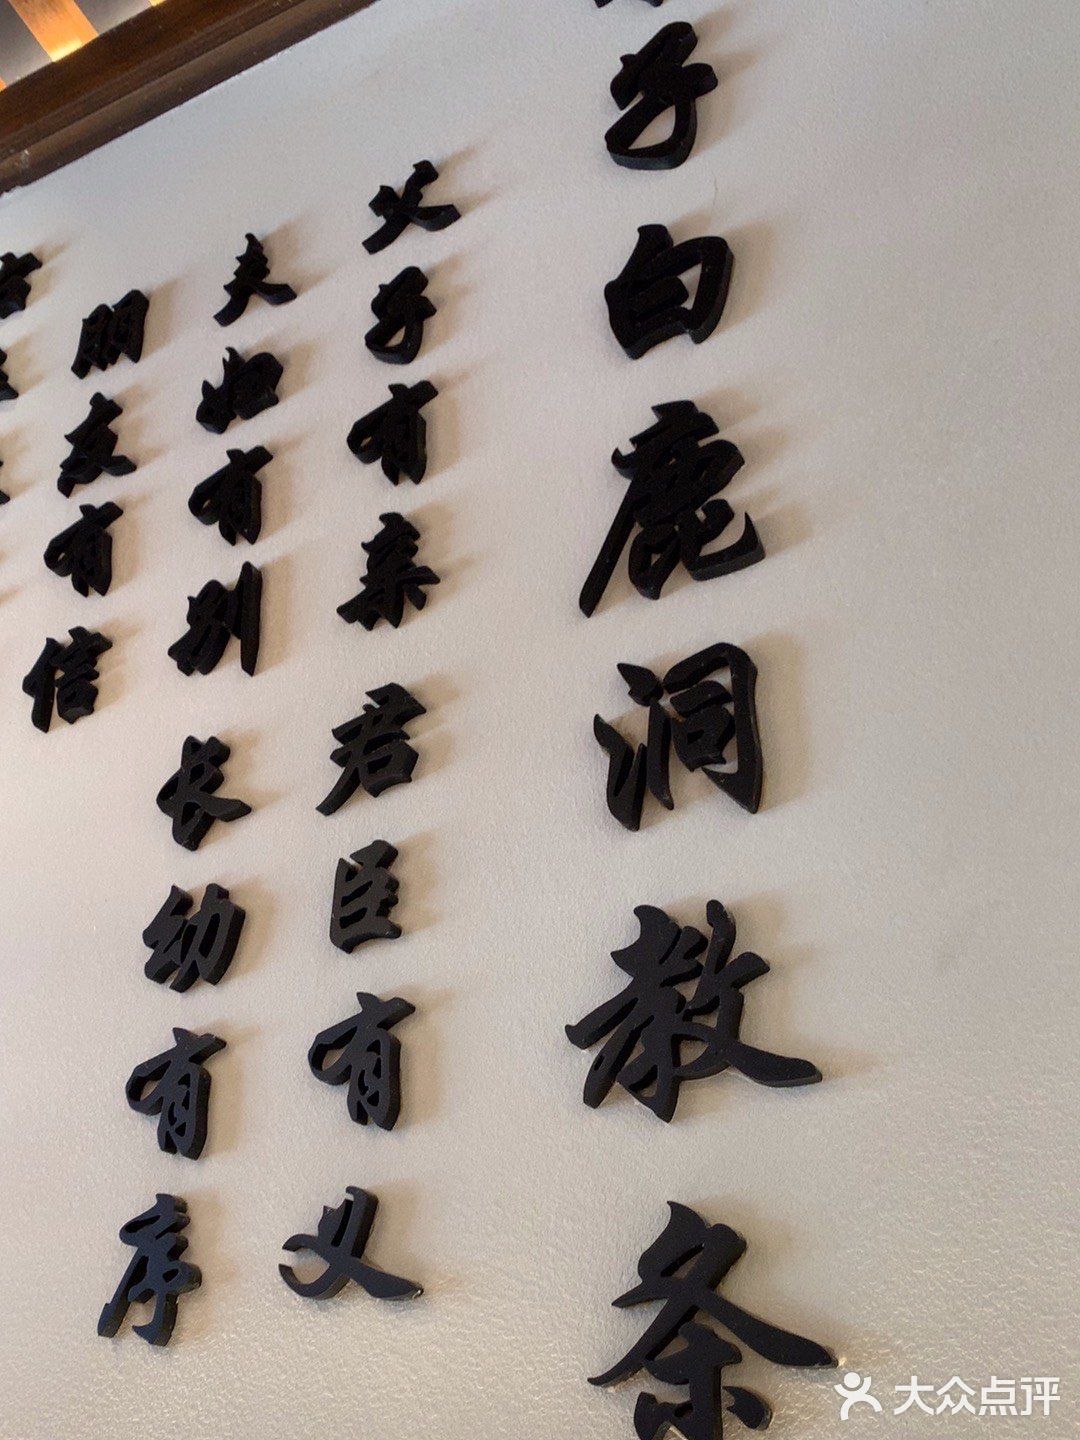 子白鹿洞教条
父子有亲君臣有义
夫妇有别长幼有序
朋友有信
大众点评